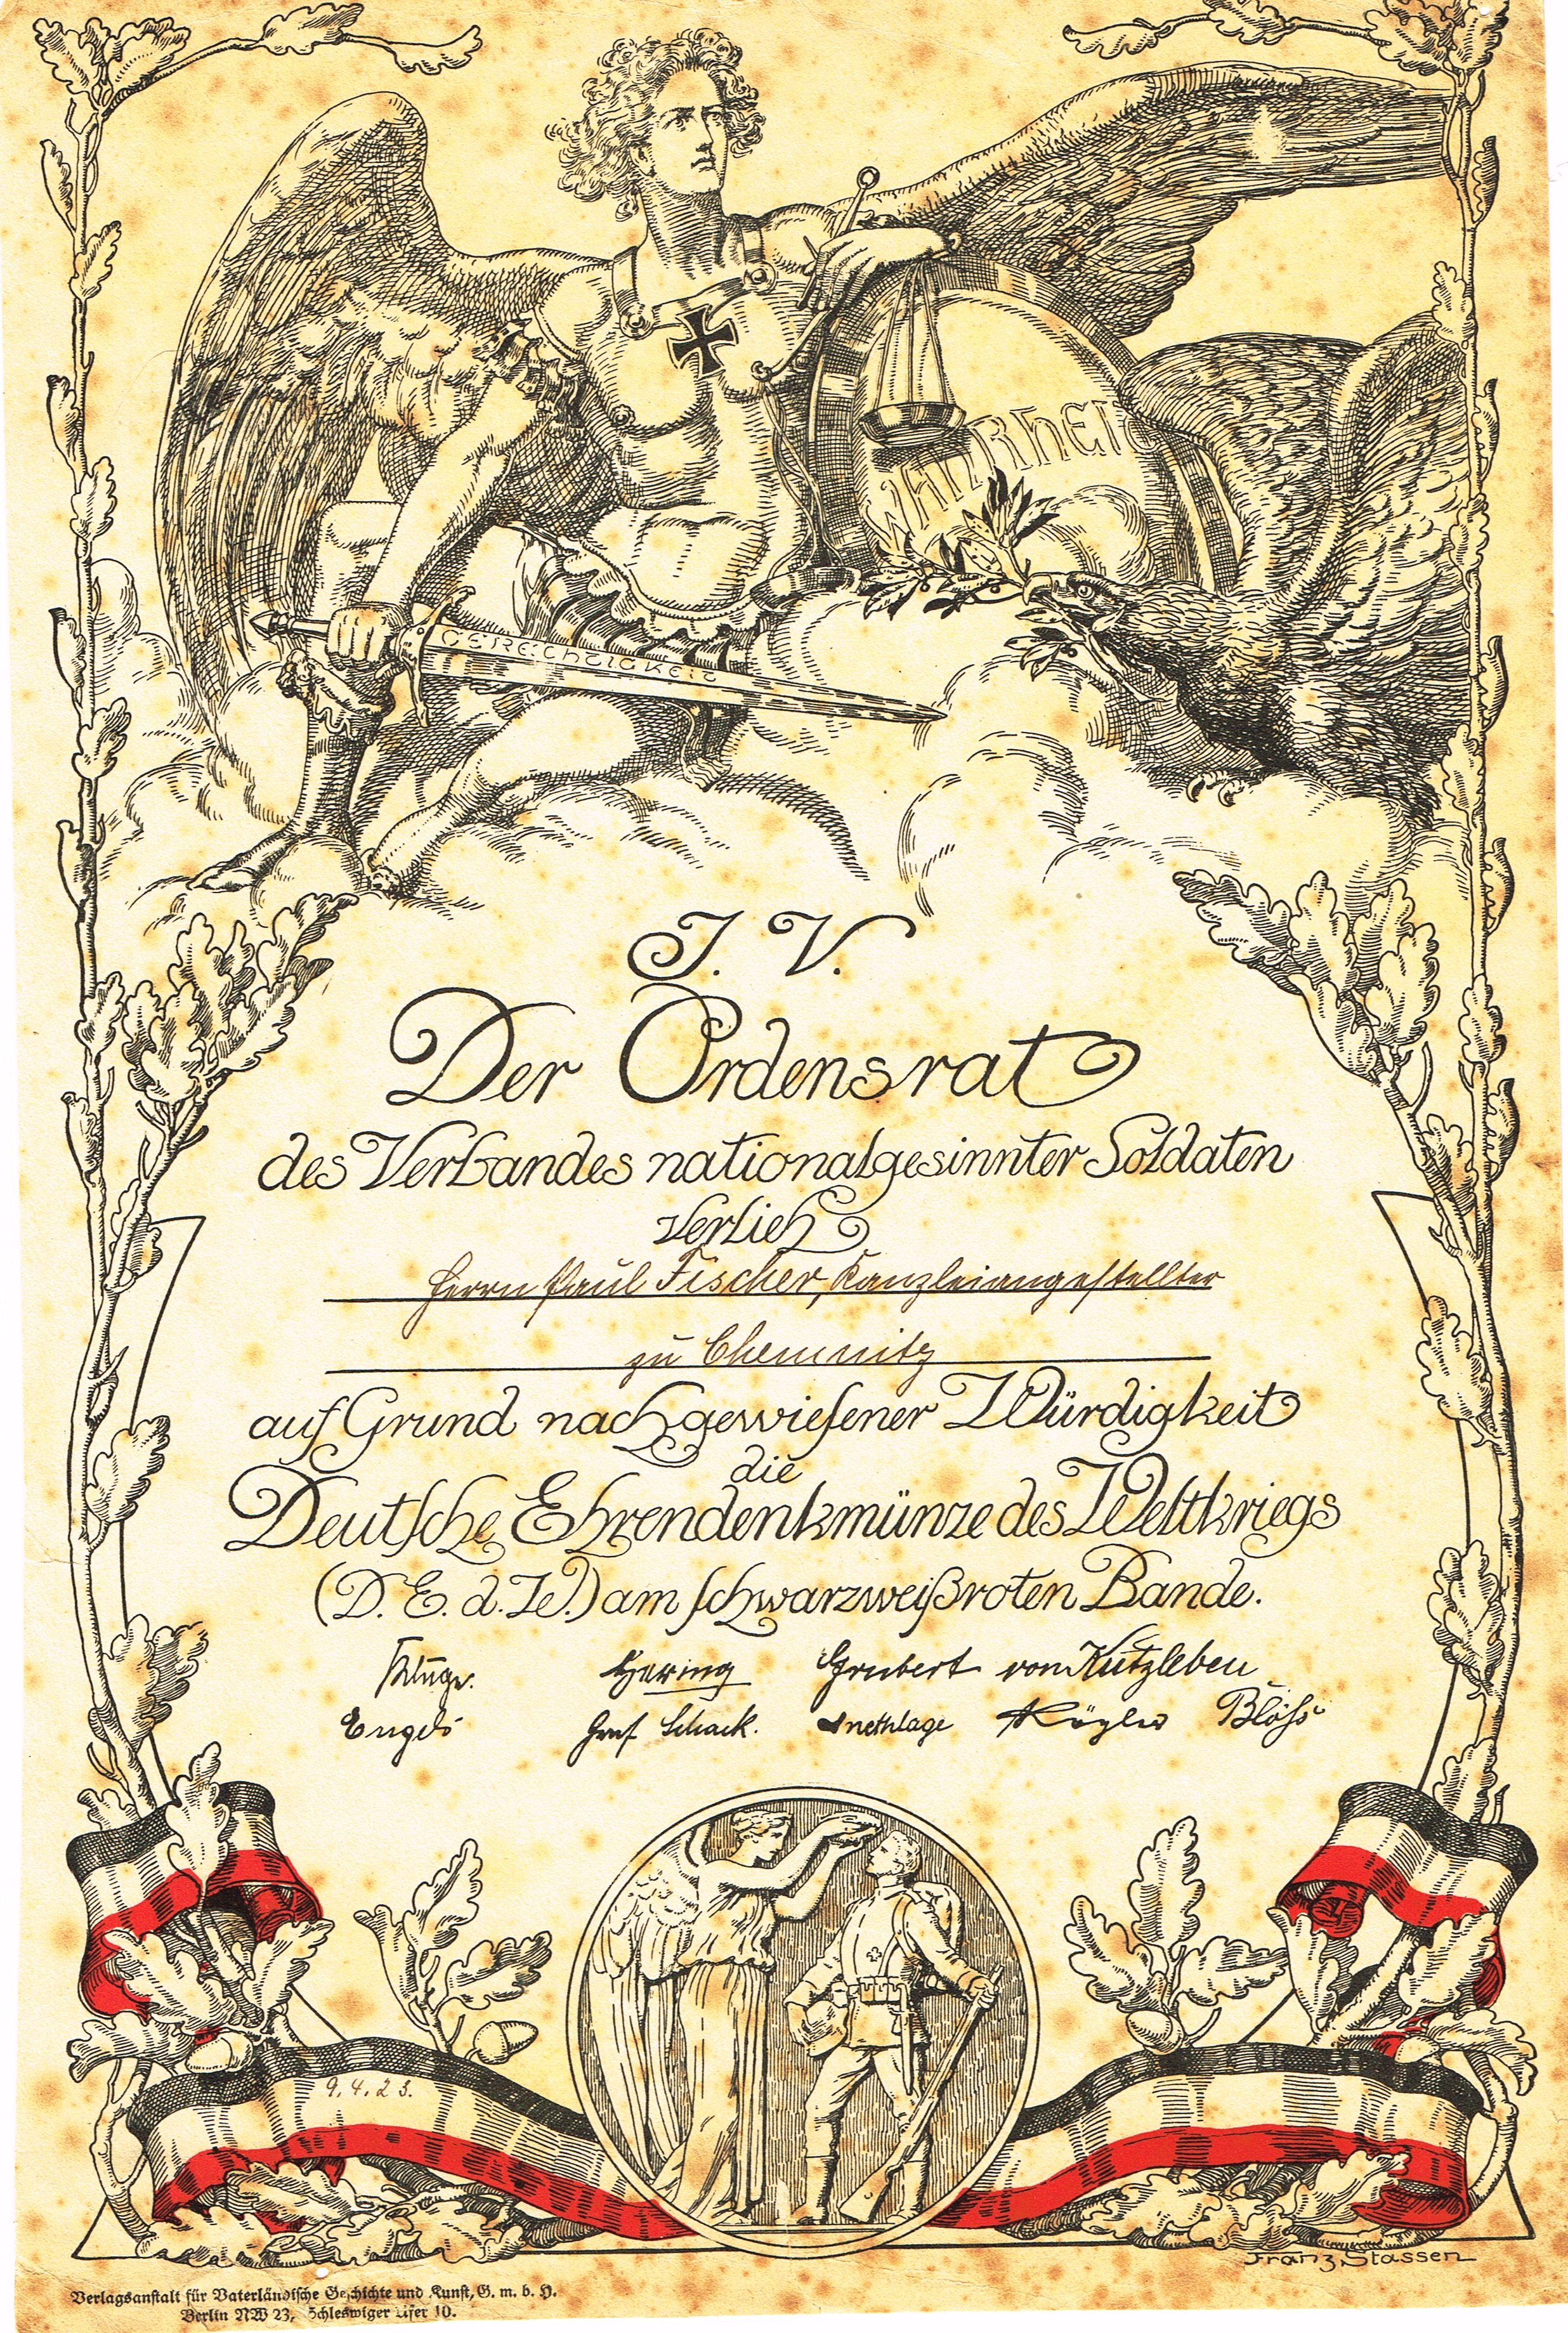 WAHRHEIT
GERECHTIGKEIT
J. V.
Der Ordensrat
des Verbandes nationalgesinnter Soldaten
verlieh
Herrn Paul Fischer, Kanzleiangestellter
zu Chemnitz
auf Grund nachgewiesener Würdigkeit
die
Deutsche Ehrendenkmünze des Weltkriegs
(D. E. d. W.) am schwarzweißroten Bande.
Hering Grubert von Kutzleben
Engels Graf Schack.
9.4.23.
Franz Stassen
Verlagsanstalt für Vaterländische Geschichte und Kunst, G. m. b. H.
Berlin NW 23, Schleswiger Ufer 10.